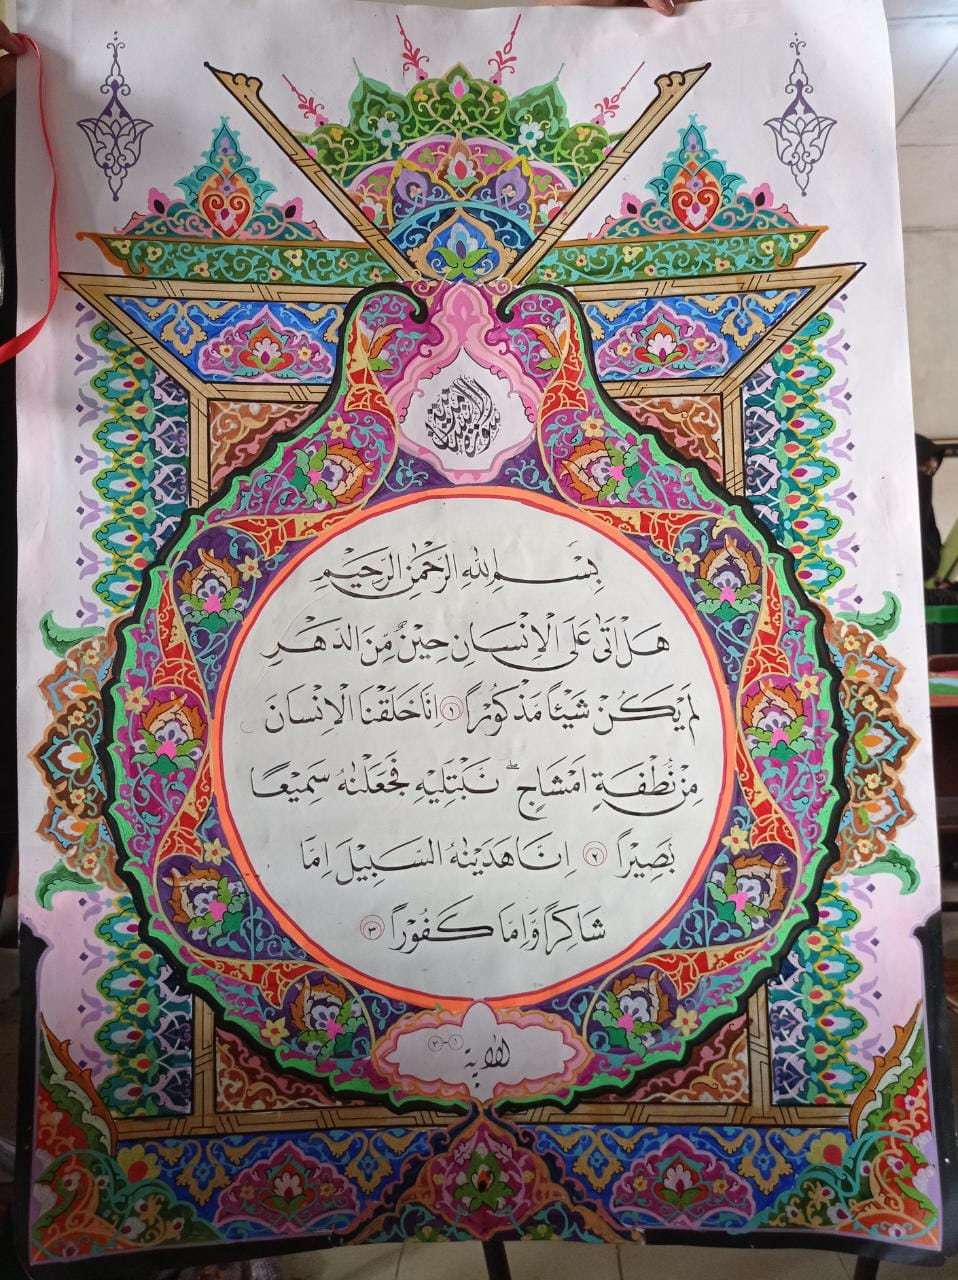 بِسْمِ اللهِ الرَّحْمٰنِ الرَّحِيْمِ
هَلْ اَتٰى عَلَى الْاِنْسَانِ حِيْنٌ مِّنَ الدَّهْرِ
لَمْ يَكُنْ شَيْئًا مَّذْكُوْرًا ١ اِنَّا خَلَقْنَا الْاِنْسَانَ
مِنْ نُّطْفَةٍ اَمْشَاجٍۖ نَّبْتَلِيْهِ فَجَعَلْنٰهُ سَمِيْعًا
بَصِيْرًا ٢ اِنَّا هَدَيْنٰهُ السَّبِيْلَ اِمَّا
شَاكِرًا وَّاِمَّا كَفُوْرًا ٣
الاية ١-٣